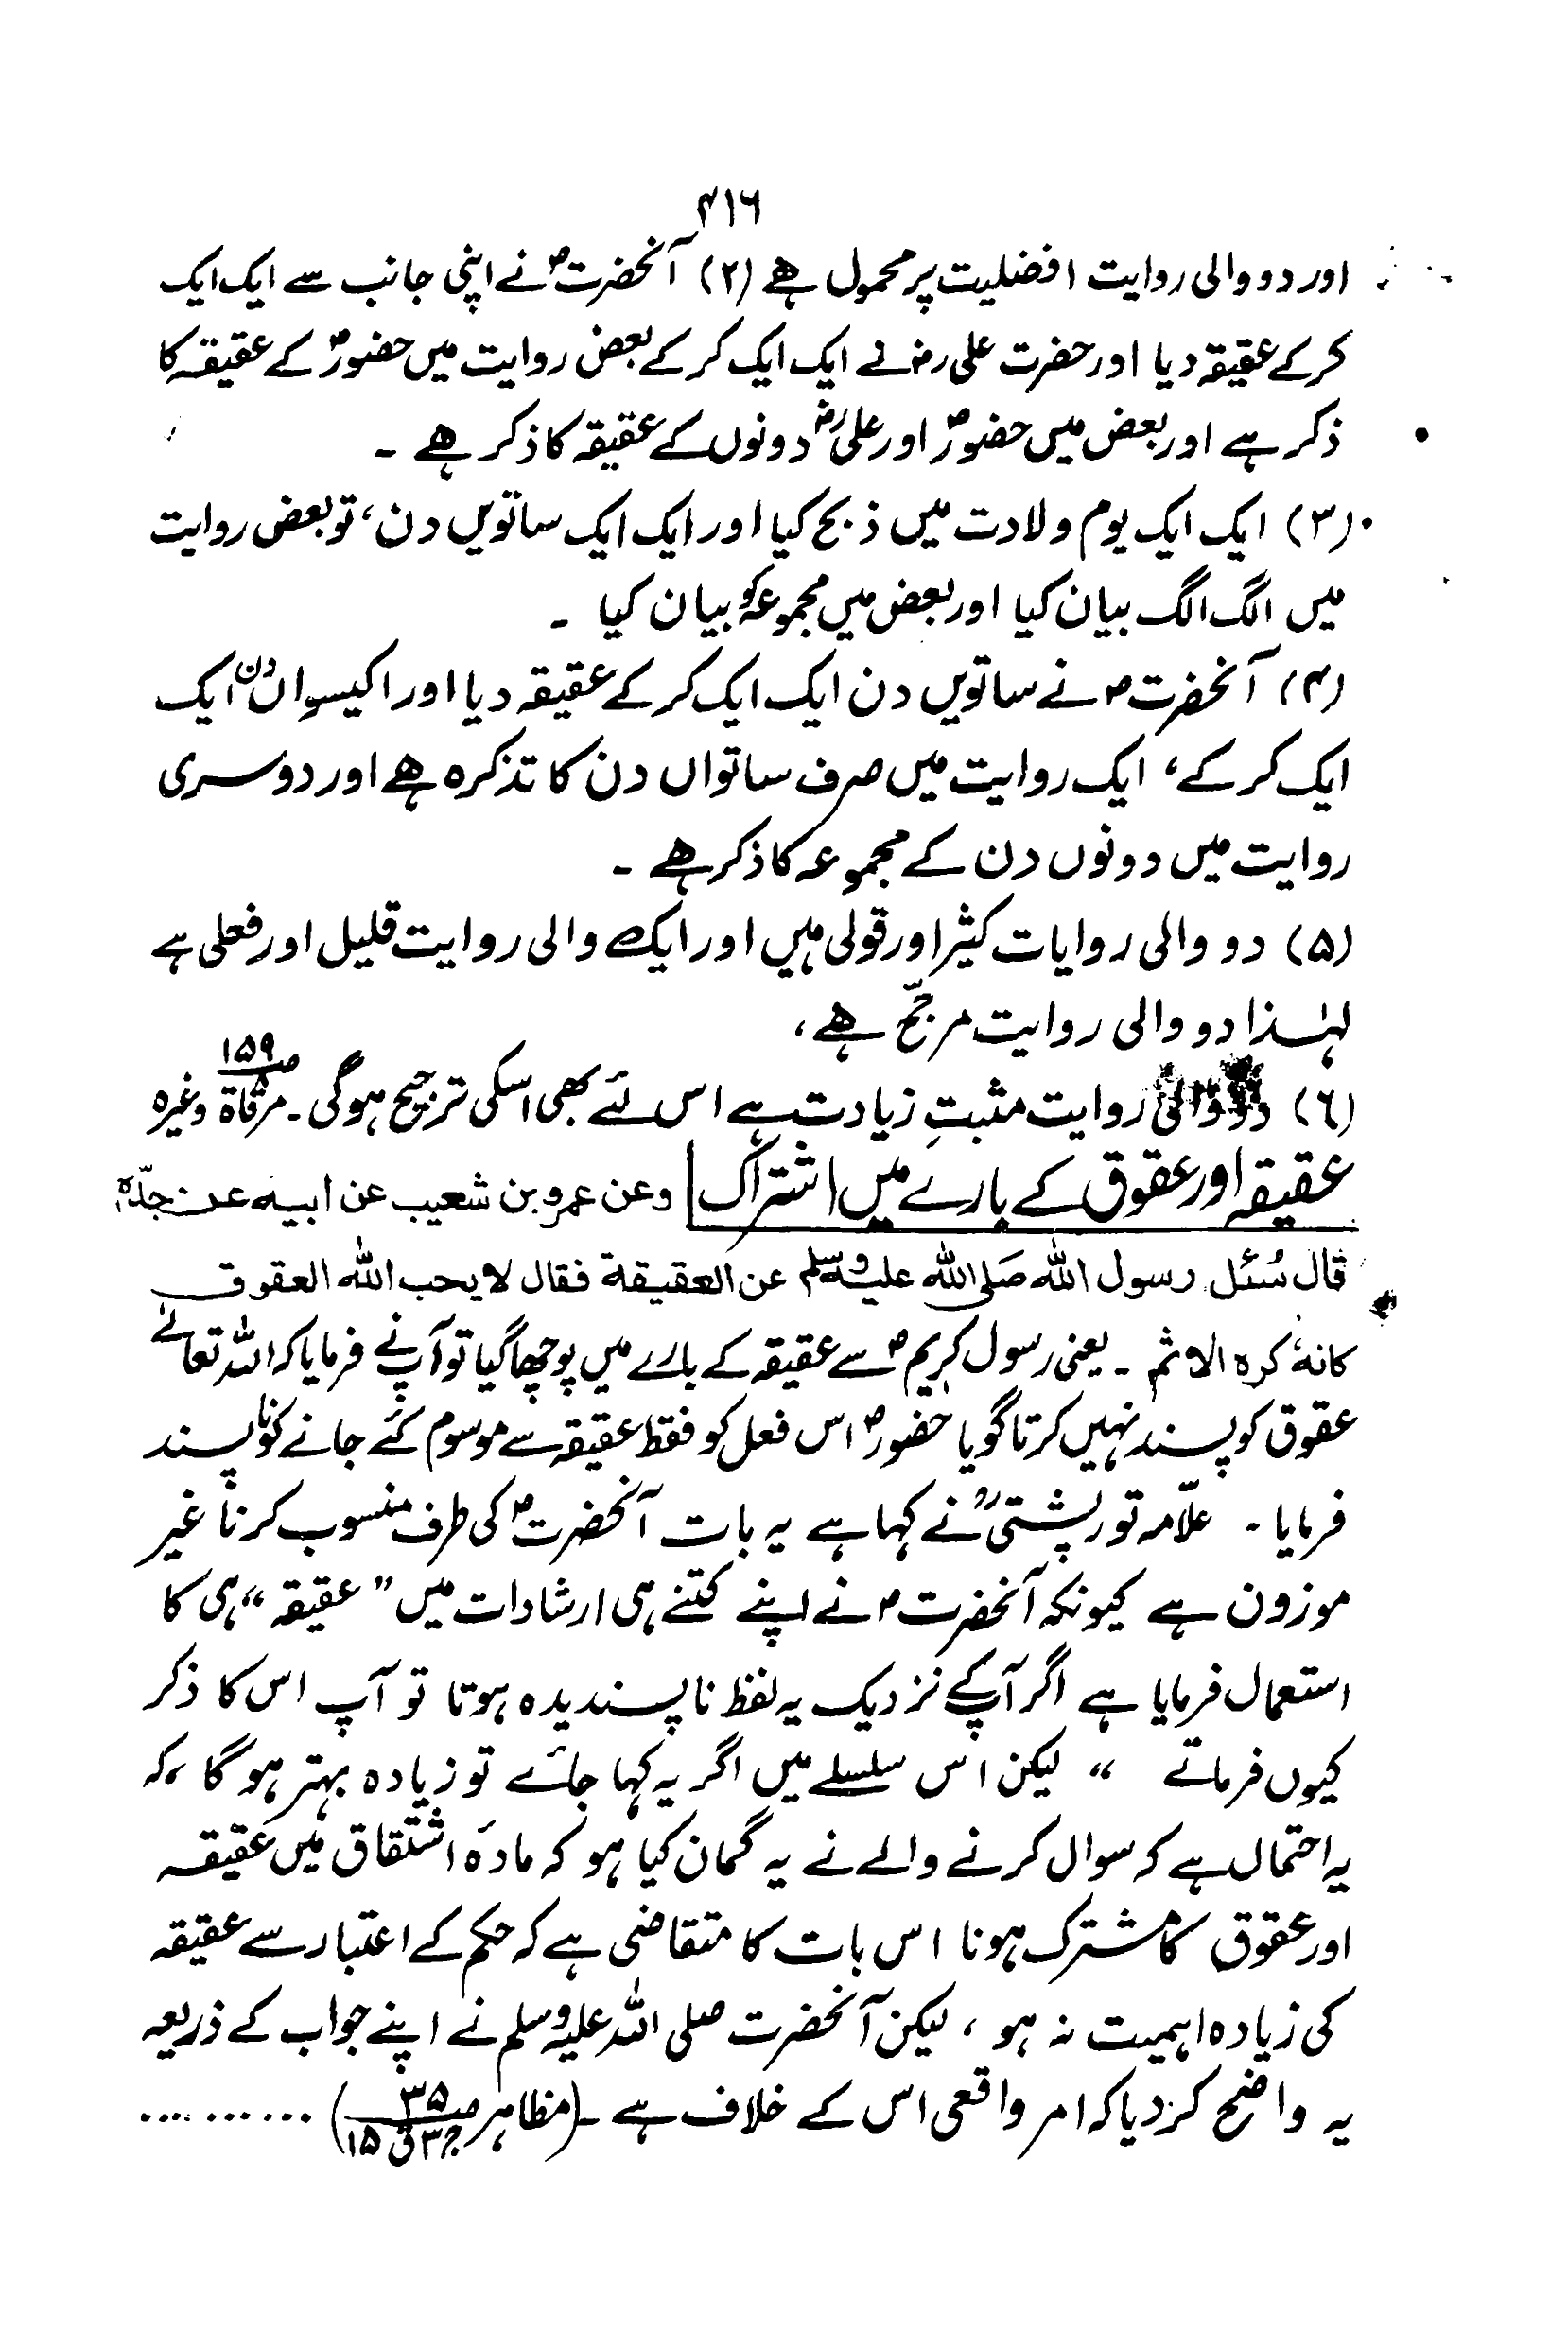 ۴۱۶
اور دو والی روایت افضلیت پر محمول ہے (۲) آنحضرتؐ نے اپنی جانب سے ایک ایک
کرکے عقیقہ دیا اور حضرت علی رضؓ نے ایک ایک کرکے بعض روایت میں حضورؐ کے عقیقہ کا
ذکر ہے اور بعض میں حضورؐ اور علیؓ دونوں کے عقیقہ کا ذکر ہے ۔
(۳) ایک ایک یوم ولادت میں ذبح کیا اور ایک ایک ساتویں دن، تو بعض روایت
میں الگ الگ بیان کیا اور بعض میں مجموعہ کو بیان کیا ۔
(۴) آنحضرتؐ نے ساتویں دن ایک ایک کرکے عقیقہ دیا اور اکیسواں دن ایک
ایک کرکے، ایک روایت میں صرف ساتواں دن کا تذکرہ ہے اور دوسری
روایت میں دونوں دن کے مجموعہ کا ذکر ہے ۔
(۵) دو والی روایات کثیر اور قولی ہیں اور ایک والی روایت قلیل اور فعلی ہے
لہٰذا دو والی روایت مرجّح ہے،
(۶) دو والی روایت مثبتِ زیادت ہے اس لئے بھی اسکی ترجیح ہوگی ۔ مرقاۃ ص۱۵۹ وغیرہ
عقیقہ اور عقوق کے بارے میں اشتراک وعن عمرو بن شعیب عن ابیہ عن جدّہ
قال سُئل رسول اللہ صلی اللہ علیہ وسلم عن العقیقة فقال لا یحب اللہ العقوق
کانہٗ کرہ الاثم ۔ یعنی رسول کریمؐ سے عقیقہ کے بارے میں پوچھا گیا تو آپ نے فرمایا کہ اللہ تعالیٰ
عقوق کو پسند نہیں کرتا گویا حضورؐ اس فعل کو فقط عقیقہ سے موسوم کئے جانے کو ناپسند
فرمایا ۔ علّامہ تورپشتیؒ نے کہا ہے یہ بات آنحضرتؐ کی طرف منسوب کرنا غیر
موزون ہے کیونکہ آنحضرتؐ نے اپنے کتنے ہی ارشادات میں ” عقیقہ “ ہی کا
استعمال فرمایا ہے اگر آپ کے نزدیک یہ لفظ ناپسندیدہ ہوتا تو آپ اس کا ذکر
کیوں فرماتے “ لیکن اس سلسلے میں اگر یہ کہا جائے تو زیادہ بہتر ہوگا، کہ
یہ احتمال ہے کہ سوال کرنے والے نے یہ گمان کیا ہو کہ مادۂ اشتقاق میں عقیقہ
اور عقوق کا مشترک ہونا اس بات کا متقاضی ہے کہ حکم کے اعتبار سے عقیقہ
کی زیادہ اہمیت نہ ہو ، لیکن آنحضرت صلی اللہ علیہ وسلم نے اپنے جواب کے ذریعہ
یہ واضح کردیا کہ امر واقعی اس کے خلاف ہے ۔ (مظاہر ص۳۵ ج۳ ق ۱۵) ..........